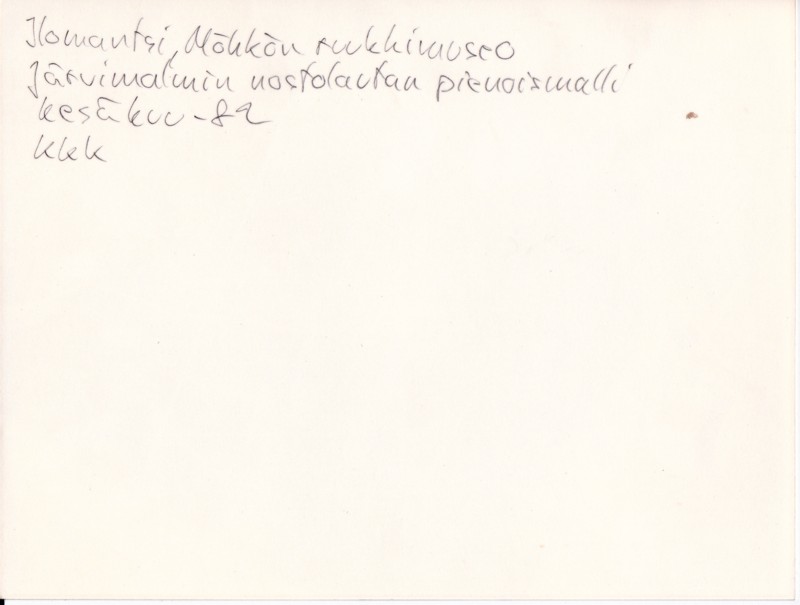 Ilomantsi, Möhkön ruukkimuseo
Järvimalmin nostolautan pienoismalli
kesäkuu -82
KKK